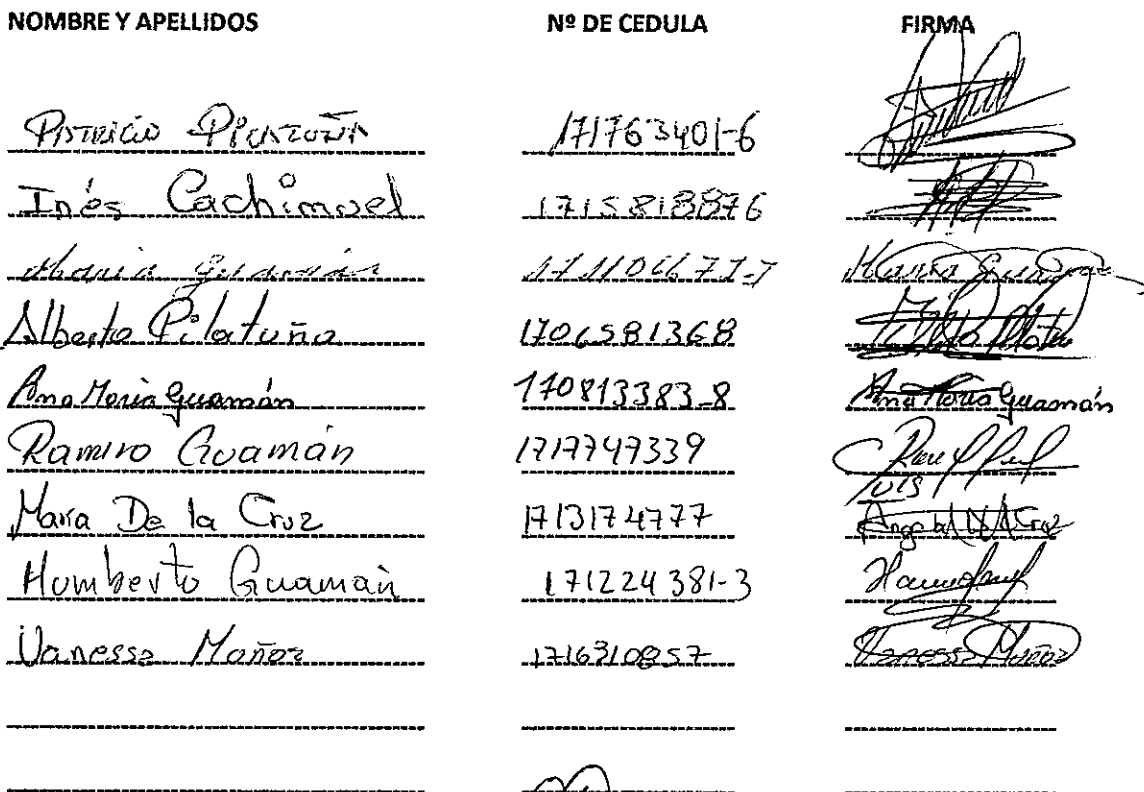 NOMBRE Y APELLIDOS Nº DE CEDULA FIRMA
Patricio 171763401-6
Inés Cachimuel 1715818876
Maria Guamán Maria
Alberto Pilatuña 1706581368
Ana Maria Guamán 170813383-8 Ana Maria Guamán
Ramiro Guamán 1717747339
Maria De la Cruz 1713174777
Humberto Guamán 171224381-3
Vanessa Muñoz 1716310857 Vanessa Muñoz